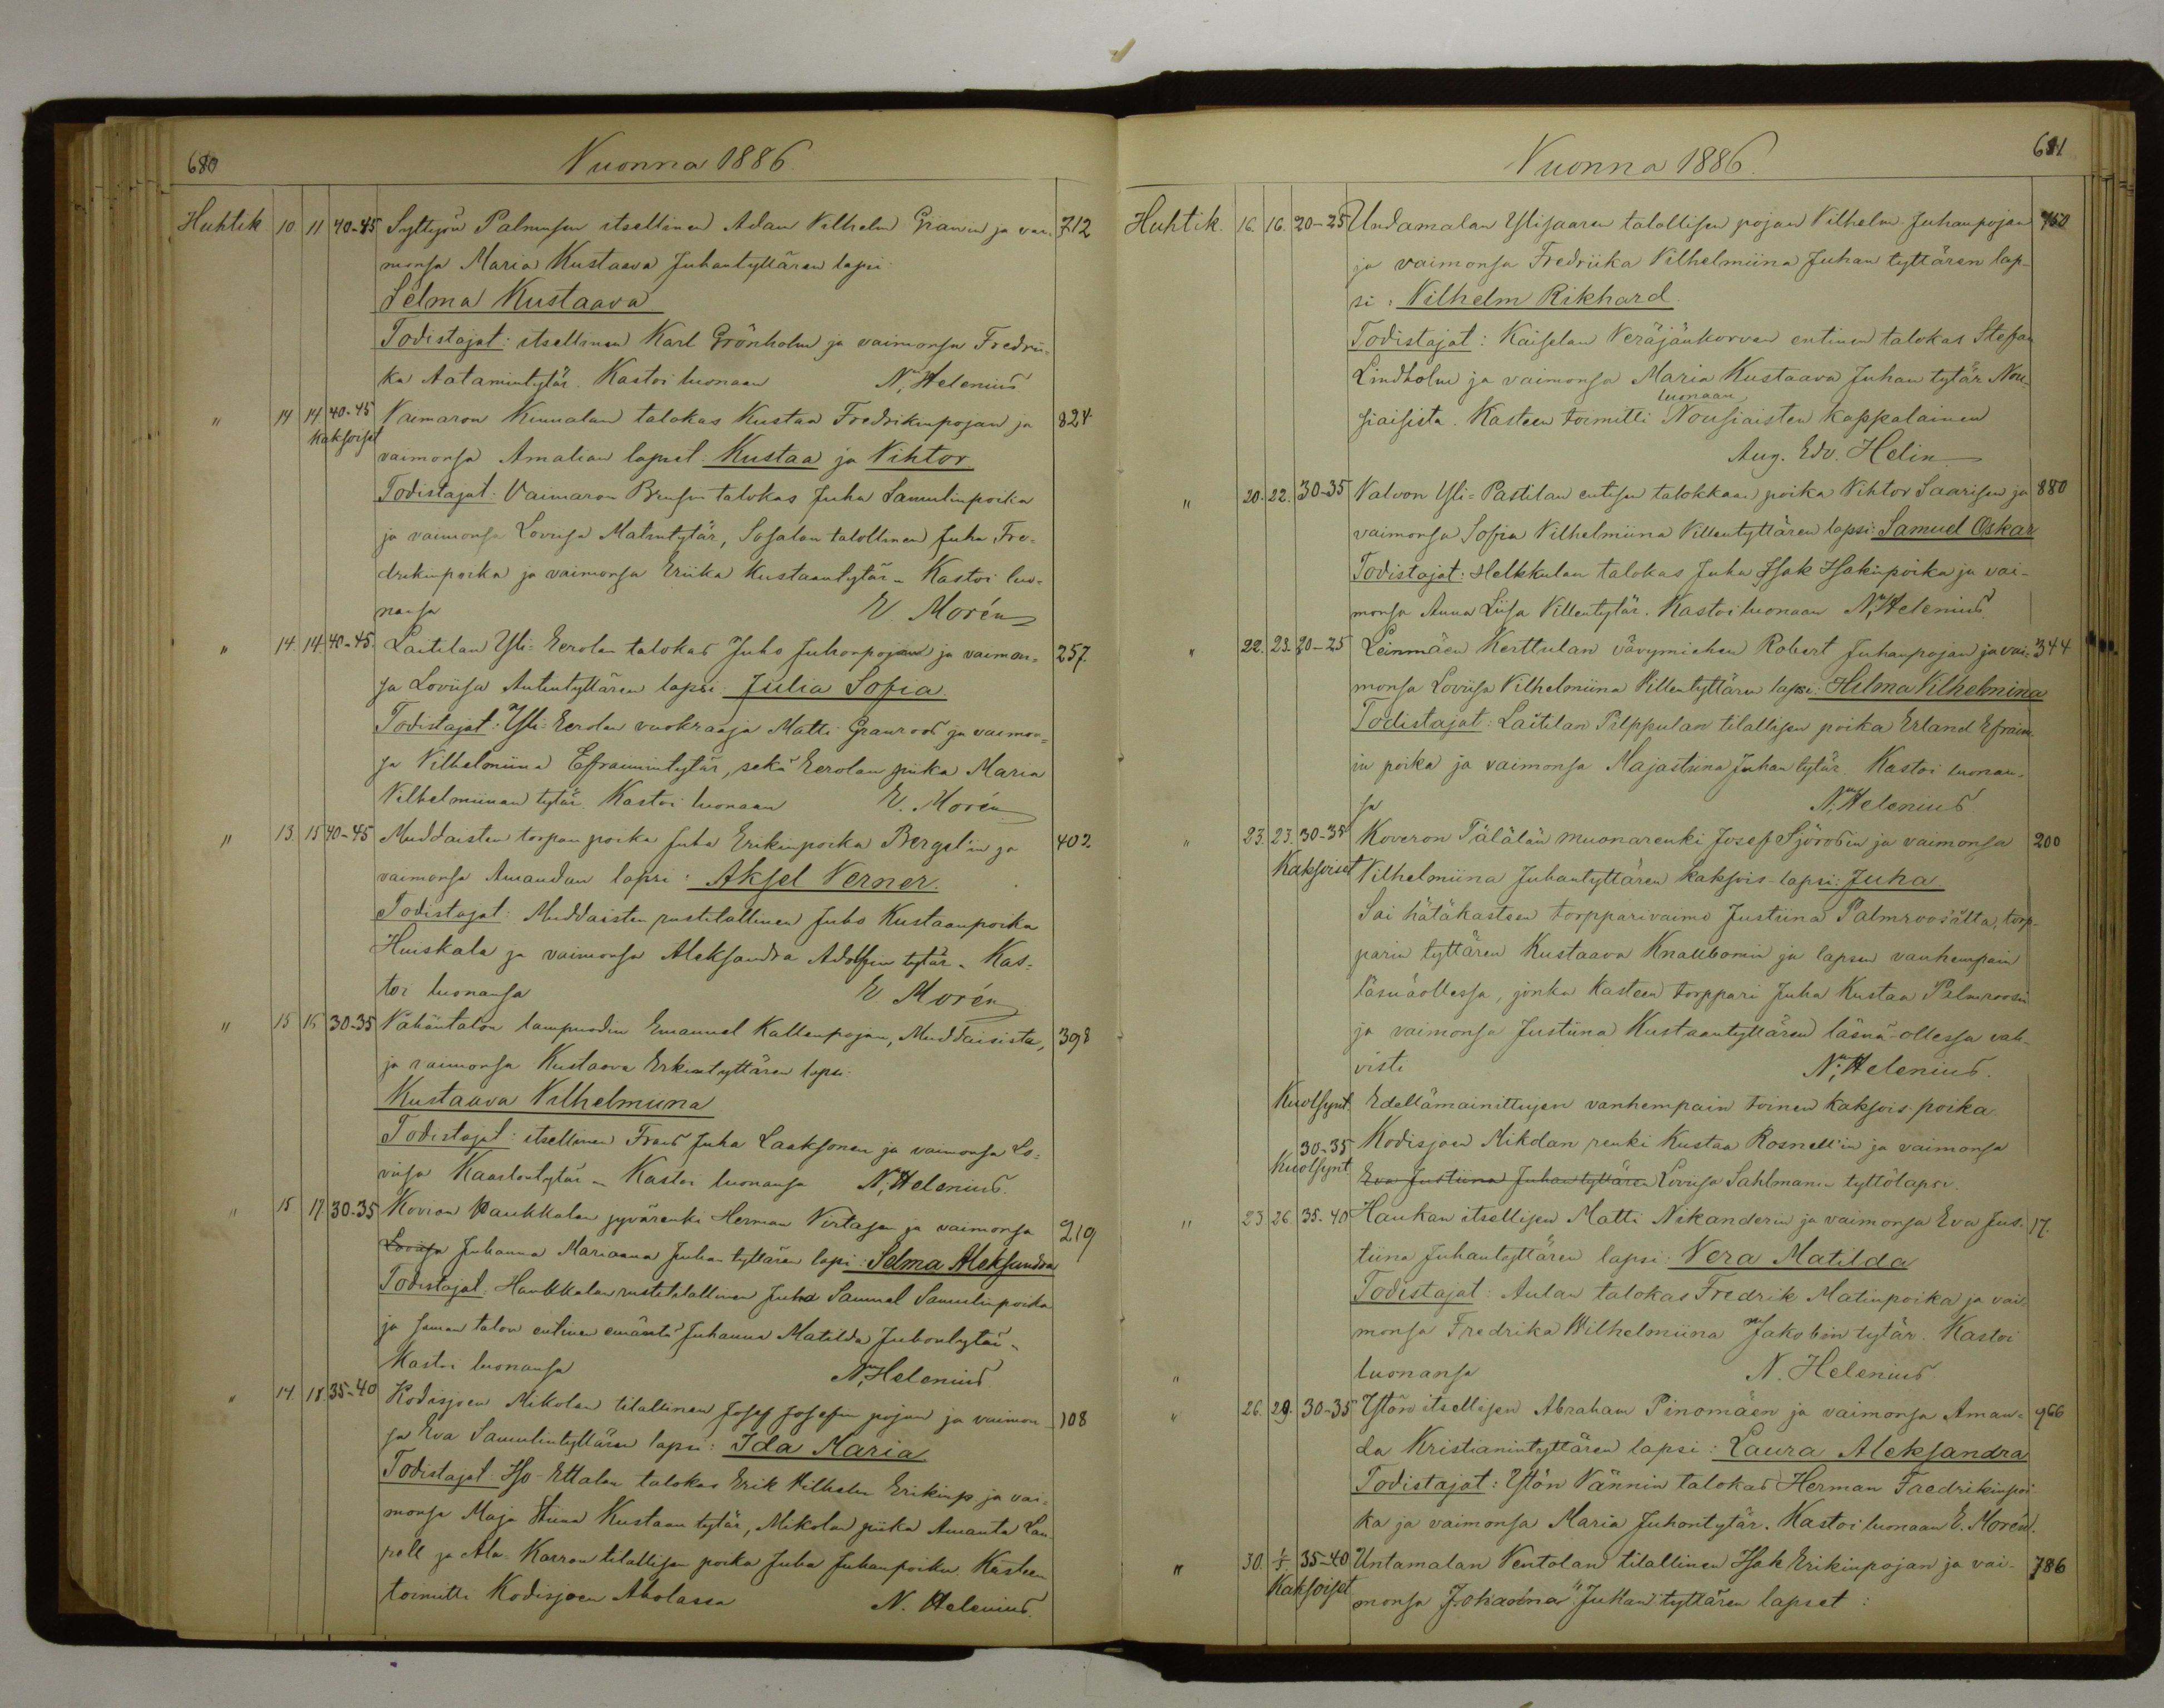 680
Nuonna 1886.
Huhtik. 10. 11 40-45 Syttyön Palmusen itsellinen Adam Vilhelm Granin ja vai- 712
monsa Maria Kustaava Juhantyttären lapsi:
Selma Kustaava
Todistajat: itsellinen Karl Grönholm ja vaimonsa Fredrii-
ka Aatamintytär. Kastoi luonaan N. Helenius
" 14 14 40-45 Vaimaron Kinnalan talokas Kustaa Fredrikinpojan ja 824
Kaksoiset
vaimonsa Amalian lapset: Kustaa ja Vihtor
Todistajat: Vaimaron talokas Juha Samulinpoika
ja vaimonsa Lovisa Matintytär, Sasalan talollinen Juha Fre-
drikinpoika ja vaimonsa Eriika Kustaantytär. Kastoi luo-
nansa E. Morén
" 14. 14. 40-45. Laitilan Yli-Eerolan talokas Juho Juhonpojan ja vaimon- 257.
sa Loviisa Antintyttären lapsi: Julia Sofia.
Todistajat: Yli-Eerolan vuokraaja Matti Granroos ja vaimon-
sa Vilhelmiina Effraimintytär, sekä Eerolan piika Maria
Vilhelmiinan tytär. Kastoi luonaan E. Morén
" 13. 15 40-45 Muddaisten torpan poika Juha Erikinpoika Bergel'in ja 402.
vaimonsa Amandan lapsi: Aksel Verner.
Todistajat: Muddaisten rustitallinen Juho Kustaanpoika
Huiskala ja vaimonsa Aleksandra Adolfin tytär. Kas-
toi luonansa E Morén
" 15 16 30-35 Vähäntalon lampuodin Emanuel Kallenpojan, Muddaisista, 398
ja vaimonsa Kustaava Erkintyttären lapsi:
Kustaava Vilhelmiina
Todistajat: itsellinen Frans Juha Laaksonen ja vaimonsa Lo-
viisa Kaarlontytär. Kastoi luonansa N. Helenius.
" 15 17 30-35 Kovion Paukkalan jyvärenki Herman Virtasen ja vaimonsa 219
Loviisa Juhanna Mariaana Juhan tyttären lapsi: Selma Aleksandra
Todistajat: Haukkalan rustitilallinen Juha Samuel Samulinpoika
ja saman talon entinen emäntä Juhanna Matilda Juhontytär.
Kastoi luonansa N. Helenius
" 14. 18. 35-40 Kodisjoen Mikolan tilallinen Josef Josefin pojan ja vaimon- 108
sa Eva Samulintyttären lapsi: Ida Maria
Todistajat: Iso-Ettalan talokas Erik Vilhelm Erikinp. ja vai-
monsa Maja Stiina Kustaan tytär, Mikolan piika Amanta Lau-
rell ja Ala-Karron tilallisen poika Juha Juhanpoika. Kasteen
toimitti Kodisjoen Aholassa N. Helenius.
681
Nuonna 1886.
Huhtik. 16. 16. 20-25 Undamalan Ylisaaren talollisen pojan Vilhelm Juhanpojan 750
ja vaimonsa Fredriika Vilhelmiina Juhan tyttären lap-
si: Vilhelm Rikhard.
Todistajat: Kaiselan Neräjänkorven entinen talokas Stefan
Lindholm ja vaimonsa Maria Kustaava Juhan tytär Nou-
luonaan
siaisista. Kasteen toimitti Nousiaisten kappalainen
Aug. Edv. Helin
" 20. 22. 30-35 Valvon Yli-Pastilan entisen talokkaan poika Vihtor Saarisen ja 880
vaimonsa Sofia Vilhelmiina Villentyttären lapsi: Samuel Oskar
Todistajat: Helkkulan talokas Juha Isak Isakinpoika ja vai-
monsa Anna Liisa Villentytär. Kastoi luonaan N. Helenius.
" 22. 23. 20-25 Leinmäen Kerttulan vävymiehen Robert Juhanpojan ja vai- 344
monsa Loviisa Vilhelmiina Villentyttären lapsi: Hilma Vilhelmina
Todistajat: Laitilan Pilppulan tilallisen poika Erland Efraim-
in poika ja vaimonsa Majastiina Juhan tytär. Kastoi luonan-
sa N. Helenius
" 23. 23. 30-35 Koveron Tälälän muonarenki Josef Sjöroos'in ja vaimonsa 200
Kaksoiset Vilhelmiina Juhantyttären kaksois-lapsi: Juha.
Sai hätäkasteen torpparivaimo Justiina Palmroos'ilta, torp-
parin tyttären Kustaava Knaubomin ja lapsen vanhempain
läsnäollessa, jonka kasteen torppari Juha Kustaa Palmroosin
ja vaimonsa Justiina Kustaantyttären läsnä-ollessa vah-
visti N. Helenius.
Kuolsynt. Edellämainittujen vanhempain toinen kaksois-poika.
30-35 Kodisjoen Mikolan renki Kustaa Rosnell'in ja vaimonsa
Kuolsynt. Eva Justiina Juhantyttären Loviisa Sahlmanin tyttölapsi.
" 23 26. 35-40 Haukan itsellisen Matti Nikanderin ja vaimonsa Eva Jus- 17.
tiina Juhantyttären lapsi: Vera Matilda
Todistajat: Aulan talokas Fredrik Matinpoika ja vai-
monsa Fredrika Wilhelmiina Jakobin tytär. Kastoi
" luonansa N. Helenius
" 26. 29. 30-35 Ystön itsellisen Abraham Pinomäen ja vaimonsa Aman- 966
da Kristianintyttären lapsi: Laura Aleksandra
Todistajat: Ystön Vännin talokas Herman Fredrikinpoi-
ka ja vaimonsa Maria Juhontytär. Kastoi luonaan E. Morén.
" 30. 1/5. 35-40 Untamalan Ventolan tilallinen Isak Erikinpojan ja vai- 786
Kaksoiset monsa Johanna Juhan tyttären lapset: